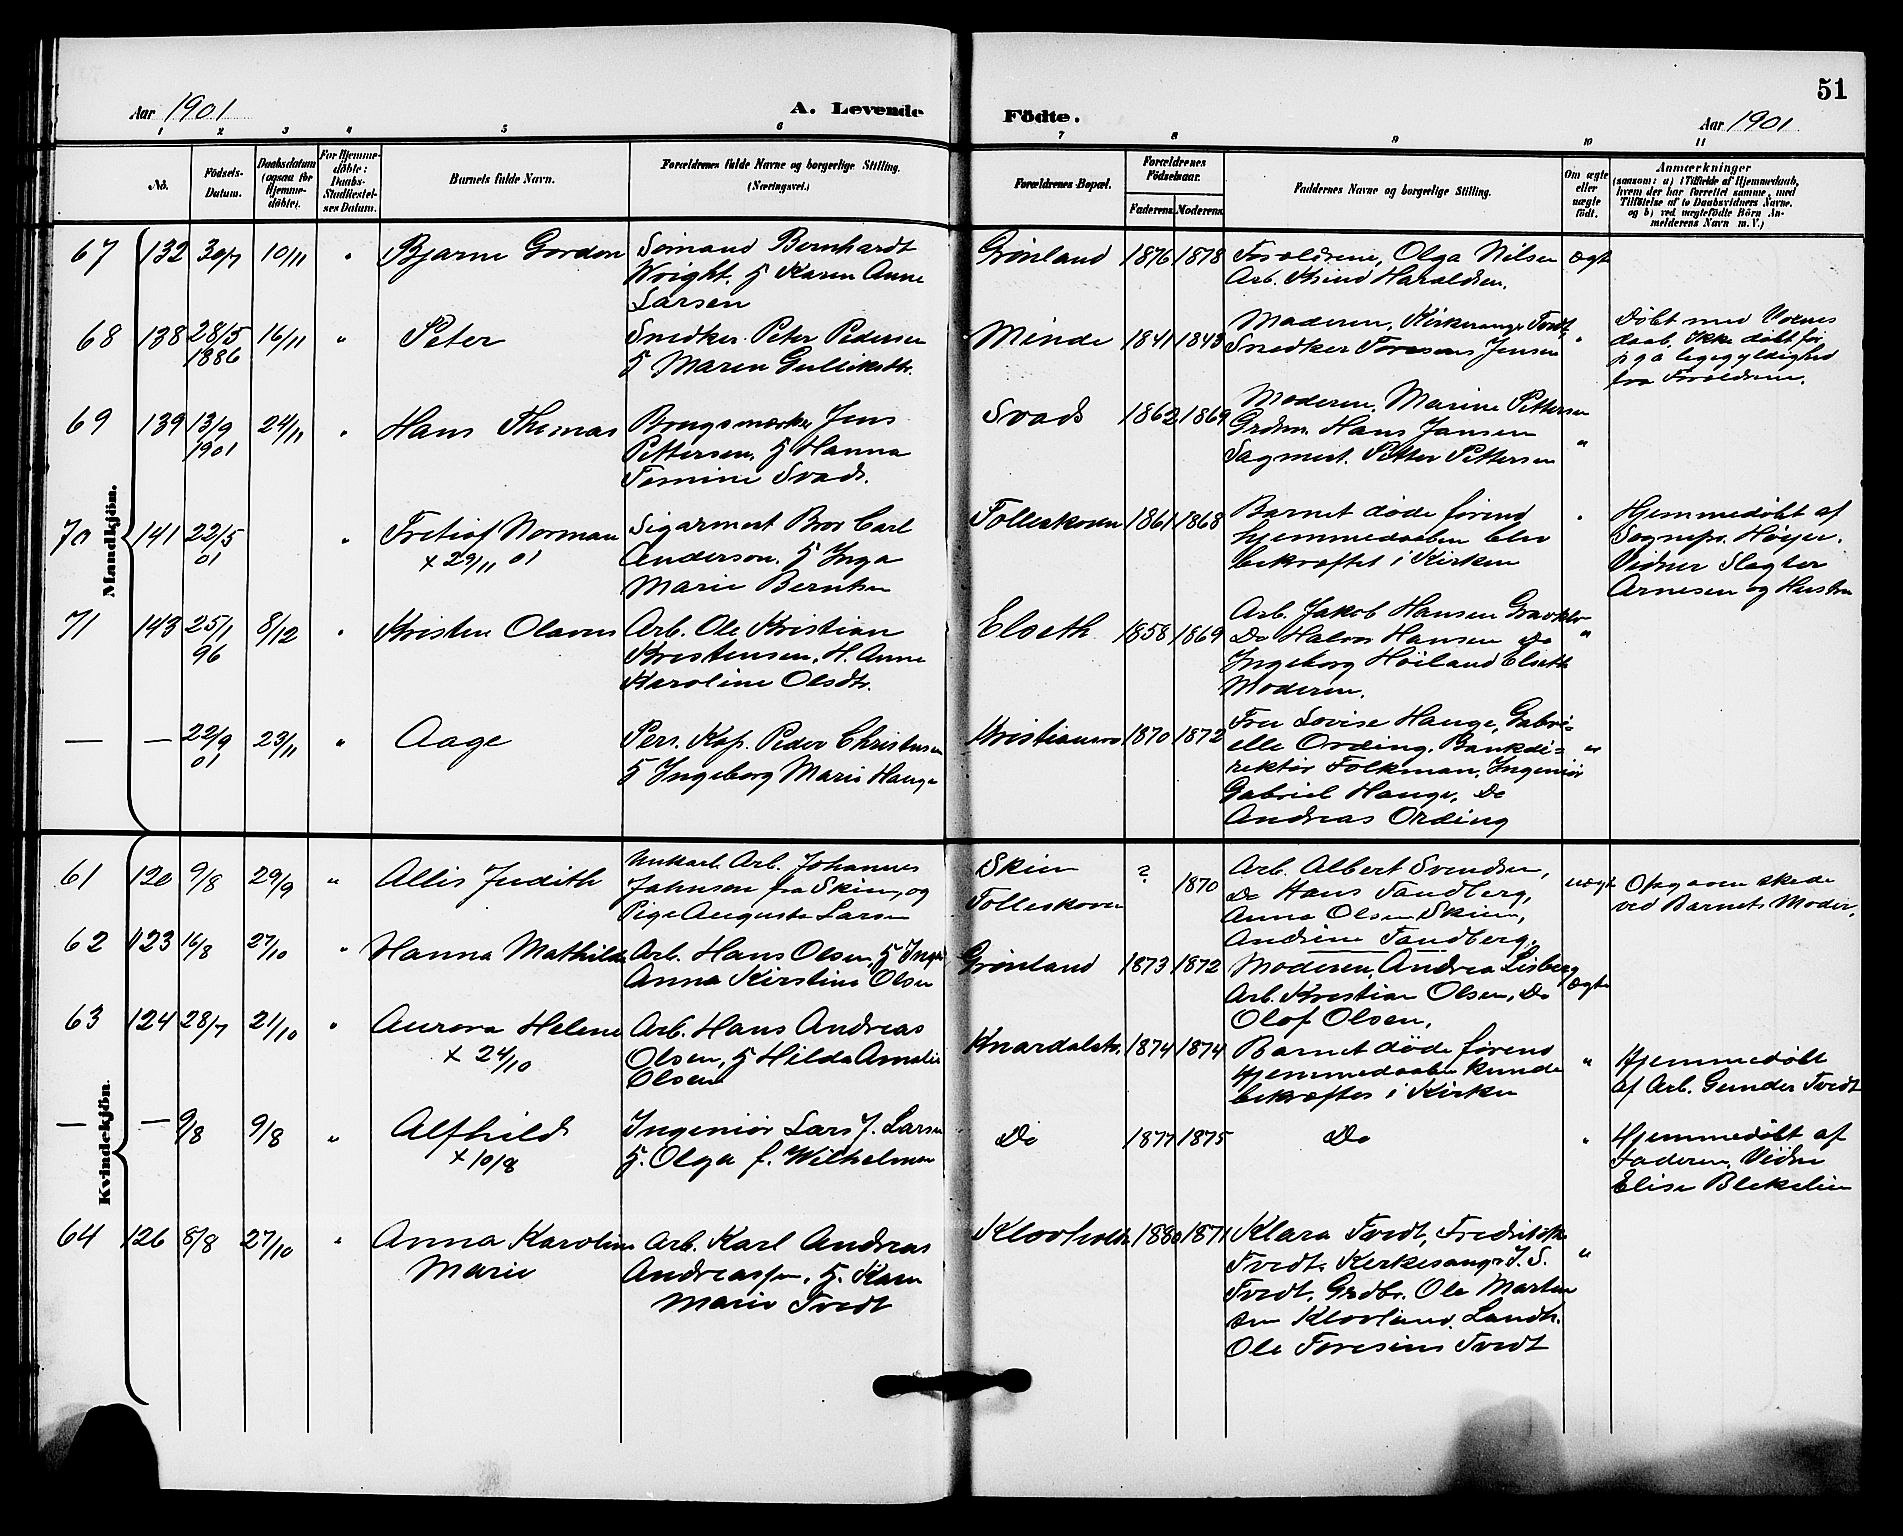 51
Aar 1901
A. Levende
Födte.
Aar 1901
1 2 3 4 5 6 7 8 9 10 11
No.
Födsels-
Datum.
Daabsdatum
(ogsaa for
Hjemme-
döbte).
For Hjemme-
döbte:
Daabs-
Stadfæstel-
ses Datum.
Barnets fulde Navn.
Forældrenes fulde Navne og borgerlige Stilling.
(Næringsvei.)
Forældrenes Bopæl.
Forældrenes
Födselsaar.
Faderens. Moderens.
Faddernes Navne og borgerlige Stilling.
Om ægte
eller
uægte
födt.
Anmærkninger
(saasom: a) i Tilfælde af Hjemmedaab,
hvem der har forrettet samme, med
Tilföielse af to Daabsvidners Navne,
og b) ved uægtefödte Börn An-
melderens Navn m. V.)
Mandkjön.
67 132 30/7 10/11 " Bjarne Gordon
Sömand Bernhardt
Wright. H Karen Anne
Larsen
Grönland 1876 1878
Forældrene, Olga Nilsen
Arb. Haraldsen.
ægte
68 138 28/5 1886 16/11 " Peter
Snedker Peter Pedersen
H Maren Gulliksdtr.
Minde 1841 1843
Moderen, Kirkesanger Tvedt,
Snedker Jensen
"
Döbt med Voxnes
daab. Ikke döbt för
pga ligegyldighed
fra Forældrene.
69 139 13/9 1901 24/11 " Hans Thomas
Jens
Pettersen, H Hanna
Svads.
Svads 1862 1869
Moderen, Marine Pettersen
Grdm. Hans Jansen
Sagmest. Petter Pettersen
"
70 141 22/5 01 " Fretiof Norman
x 29/11 01
Sigarmest Carl
Anderson. H Inga
Marie Berntsen
Folleskoven 1861 1868
Barnet döde förend
hjemmedaaben blev
bekræftet i Kirken
"
Hjemmedöbt af
Sognepr. Höyer.
Vidner Slagter
Arnesen og Hustru
71 143 25/1 96 8/12 " Kristen Olavus
Arb. Ole Kristian
Kristensen, H. Anne
Karoline Olsdtr.
Elseth 1858 1869
Arb. Jakob Hansen
Do Halvor Hansen Do
Ingeborg Höiland Elseth
Moderen.
"
— — 22/9 01 23/11 " Aage
Pers. Kap. Peder Christensen
H Ingeborg Marie Hauge
Kristiania 1870 1872
Fru Lovise Hauge, Gabri-
elle Ording. Bankdi-
rektör Folkman, Ingeniör
Gabriel Hauge, Do
Andreas Ording
"
Kvindekjön.
61 120 9/8 29/9 " Allis Judith
Unkarl. Arb. Johannes
Johnsen fra Skien, og
Pige Augusta Larsen
Skien
Folleskoven
? 1870
Arb. Albert Svendsen,
Do Hans Tandberg,
Anna Olsen Skien,
Andrine Tandberg.
uægte
Opgaven skede
ved Barnets Moder.
62 123 16/8 27/10 " Hanna Mathilde
Arb. Hans Olsen, H Inga
Anna Kirstine Olsen
Grönland 1873 1872
Moderen, Andrea Lisberg,
Arb. Kristian Olsen, Do
Olof Olsen.
ægte
63 124 28/7 21/10 " Aurora Helene
x 24/10
Arb. Hans Andreas
Olsen, H Hilda Amalie
Olsen
Knardalstr. 1874 1874
Barnet döde förend
Hjemmedaaben kunde
bekræftes i Kirken
"
Hjemmedöbt
af Arb. Gunder Tvedt
— — 9/8 9/8 " Alfhild
x 10/8
Ingeniör Lars J. Larsen
H. Olga f. Wilhelmsen
Do 1877 1875
Do
"
Hjemmedöbt af
Faderen, Vidne
Elise Blekelien
64 126 8/8 27/10 " Anna Karoline
Marie
Arb. Karl Andreas
Andreassen, H. Karen
Marie Tvedt
Klovholt 1880 1871
Klara Tvedt, Fredrikke
Tvedt. Kirkesanger I. S.
Tvedt, Grdbr. Ole Martin
sen Klovland. Landh.
Ole Tvedt
"